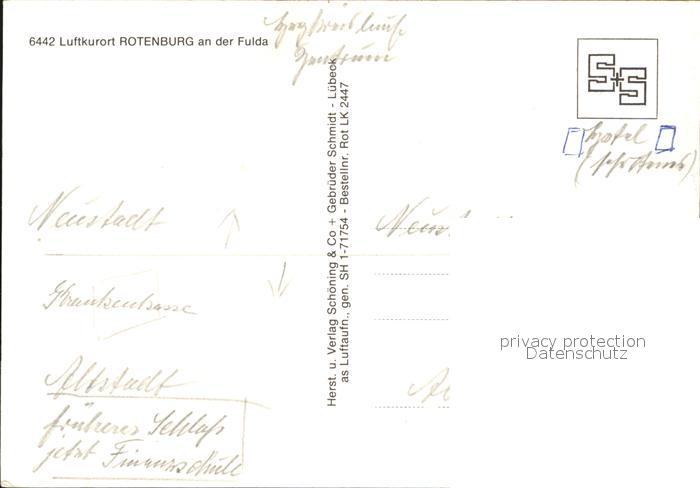 6442 Luftkurort ROTENBURG an der Fulda
Zentrum
S+S
Hotel
Neustadt
Krankenkasse
Altstadt
früheres Schloß
jetzt Finanzschule
Herst. u. Verlag Schöning & Co + Gebrüder Schmidt - Lübeck
as Luftaufn., gen. SH 1-71754 - Bestellnr. Rot LK 2447
privacy protection
Datenschutz